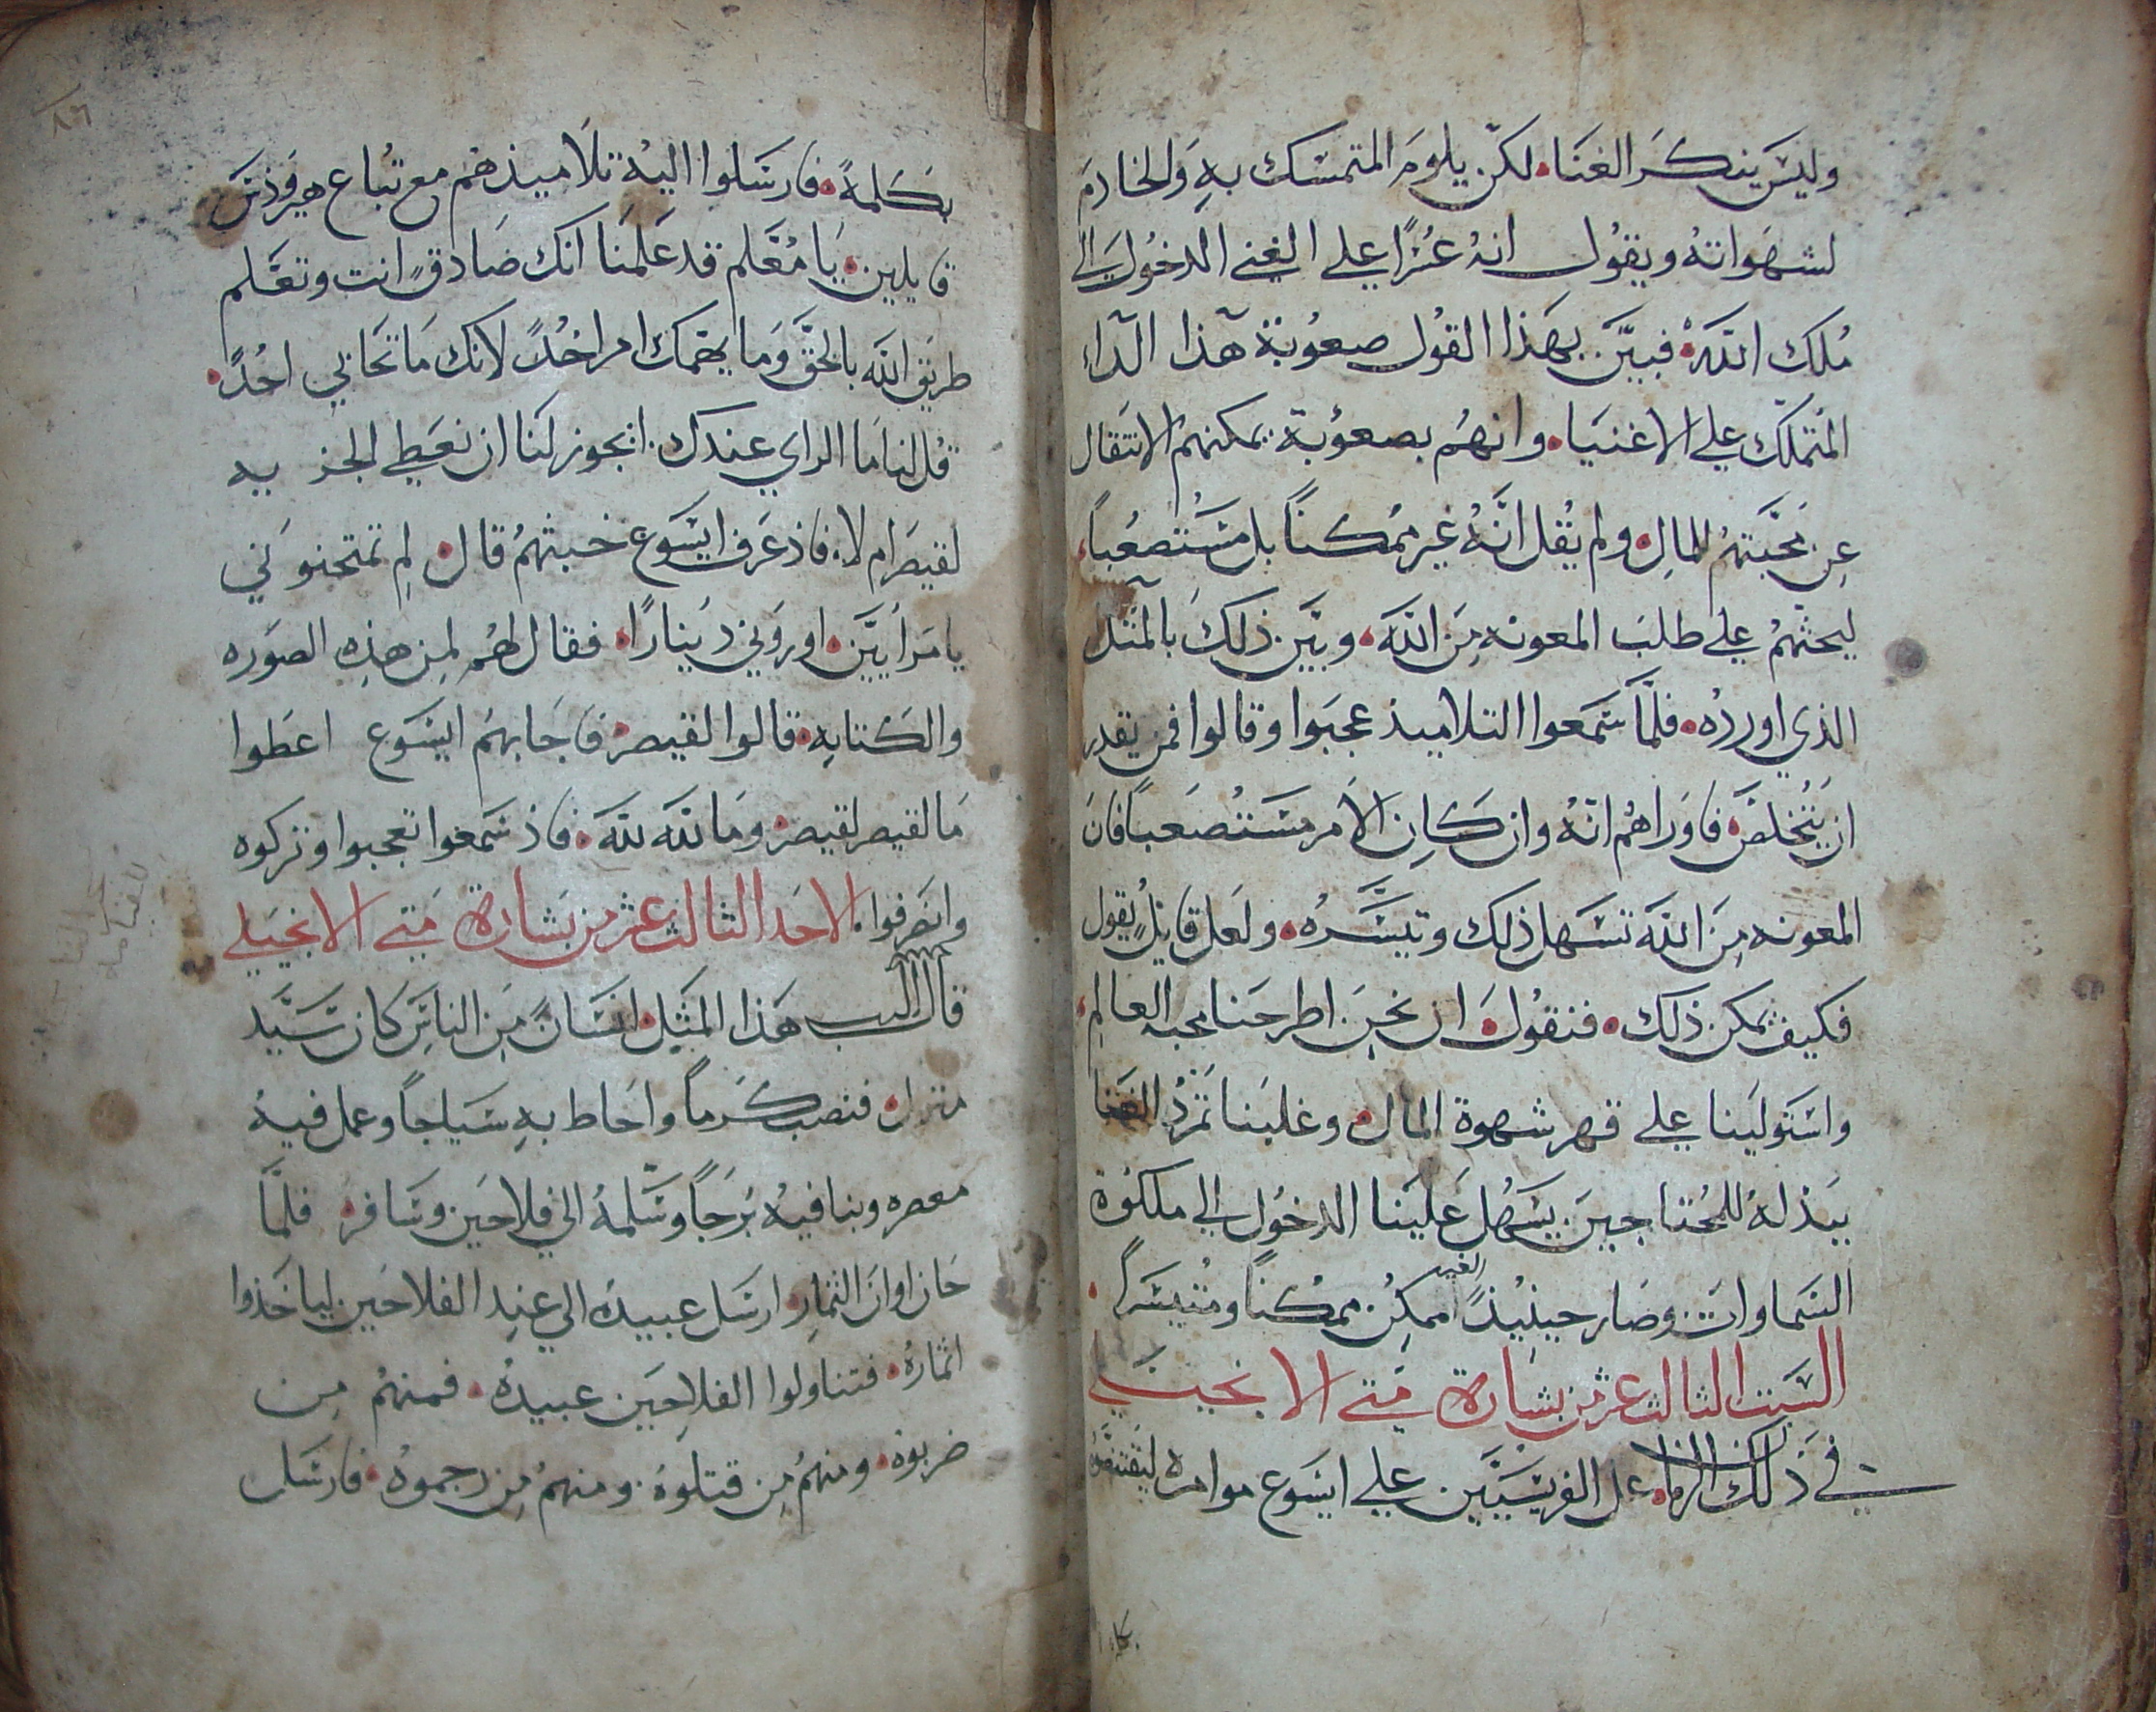 وليس ينكر الغنا. لكن يلوم المتمسك به والخادم
لشهواته ويقول انه عسرًا علي الغني الدخول الي
ملك الله. فبين بهذا القول صعوبة هذا الداء
المتملك علي الاغنيا. وانهم بصعوبة يمكنهم الانتقال
عن محبتهم للمال. ولم يقل انه غير ممكنًا بل مستصعبًا
ليحثهم علي طلب المعونه من الله. وبين ذلك بالمثل
الذي اورده. فلما سمعوا التلاميذ عجبوا وقالوا فمن يقدر
ان يتخلص. فاوراهم انه وان كان الامر مستصعبًا فان
المعونه من الله تسهل ذلك وتيسره. ولعل قايل يقول
فكيف يمكن ذلك. فنقول. ان نحن اطرحنا محبه العالم
واستولينا علي قهر شهوة المال. وغلبنا تمرد الغنا
ببذله للمحتاجين يسهل علينا الدخول الي ملكوة
السماوات. وصار حينيذ الغير ممكن ممكنًا ومتيسرًا.
السبت الثالث عشر من بشارة متي الانجيلي
في ذلك الزمان عمل الفريسيين علي ايسوع موامره ليقتنصوه
بكلمة. فارسلوا اليه تلاميذهم مع تباع هيرودس
قايلين. يا معلم قد علمنا انك صادق انت وتعلم
طريق الله بالحق وما يهمك امر احد لانك ما تحابي احد.
قل لنا ما الراي عندك. ايجوز لنا ان نعطي الجزيه
لقيصر ام لا. فاذ عرف ايسوع خبثهم قال. لم تمتحنوني
يا مراييين. اوروني دينارًا. فقال لهم لمن هذه الصوره
والكتابه. قالوا لقيصر. فاجابهم ايسوع اعطوا
ما لقيصر لقيصر. وما لله لله. فاذ سمعوا تعجبوا وتركوه
وانصرفوا. الاحد الثالث عشر من بشارة متي الانجيلي
قال الرب هذا المثل. انسان من الناس كان سيد
منزل. فنصب كرمًا واحاط به سياجًا وعمل فيه
معصره وبنا فيه برجًا وسلمه الي فلاحين وسافر. فلما
حان اوان الثمار. ارسل عبيده الي عند الفلاحين لياخذوا
اثماره. فتناولوا الفلاحين عبيده. فمنهم من
ضربوه. ومنهم من قتلوه. ومنهم من رجموه. فارسل